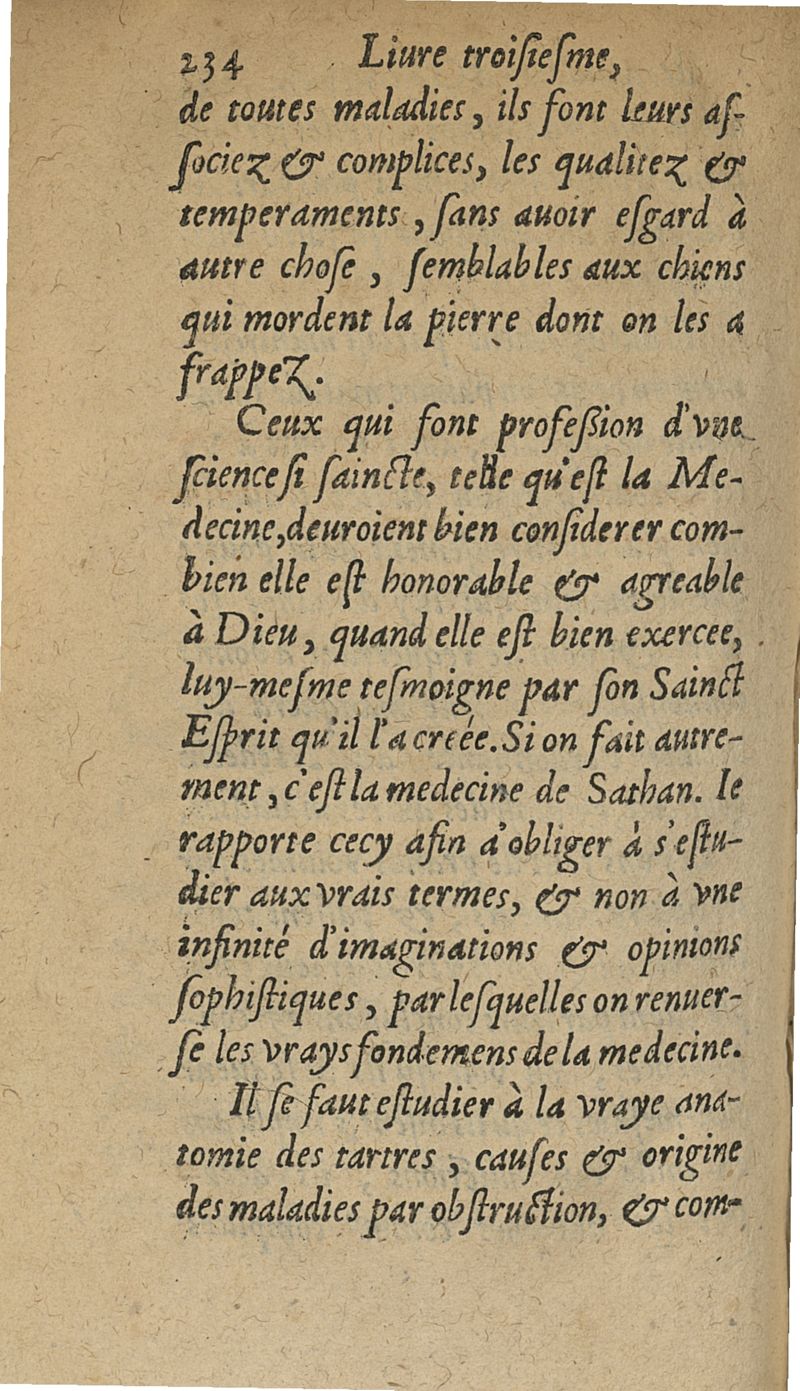 234 Liure troisiesme,
de toutes maladies, ils font leurs as-
sociez & complices, les qualitez &
temperaments, sans auoir esgard à
autre chose, semblables aux chiens
qui mordent la pierre dont on les a
frappez.
Ceux qui font profeßion d'vne
science si saincte, telle qu'est la Me-
decine, deuroient bien considerer com-
bien elle est honorable & agreable
à Dieu, quand elle est bien exercee,
luy-mesme tesmoigne par son Sainct
Esprit qu'il l'a creée. Si on fait autre-
ment, c'est la medecine de Sathan. Ie
rapporte cecy afin d'obliger à s'estu-
dier aux vrais termes, & non à vne
infinité d'imaginations & opinions
sophistiques, par lesquelles on renuer-
se les vrays fondemens de la medecine.
Il se faut estudier à la vraye ana-
tomie des tartres, causes & origine
des maladies par obstruction, & com-